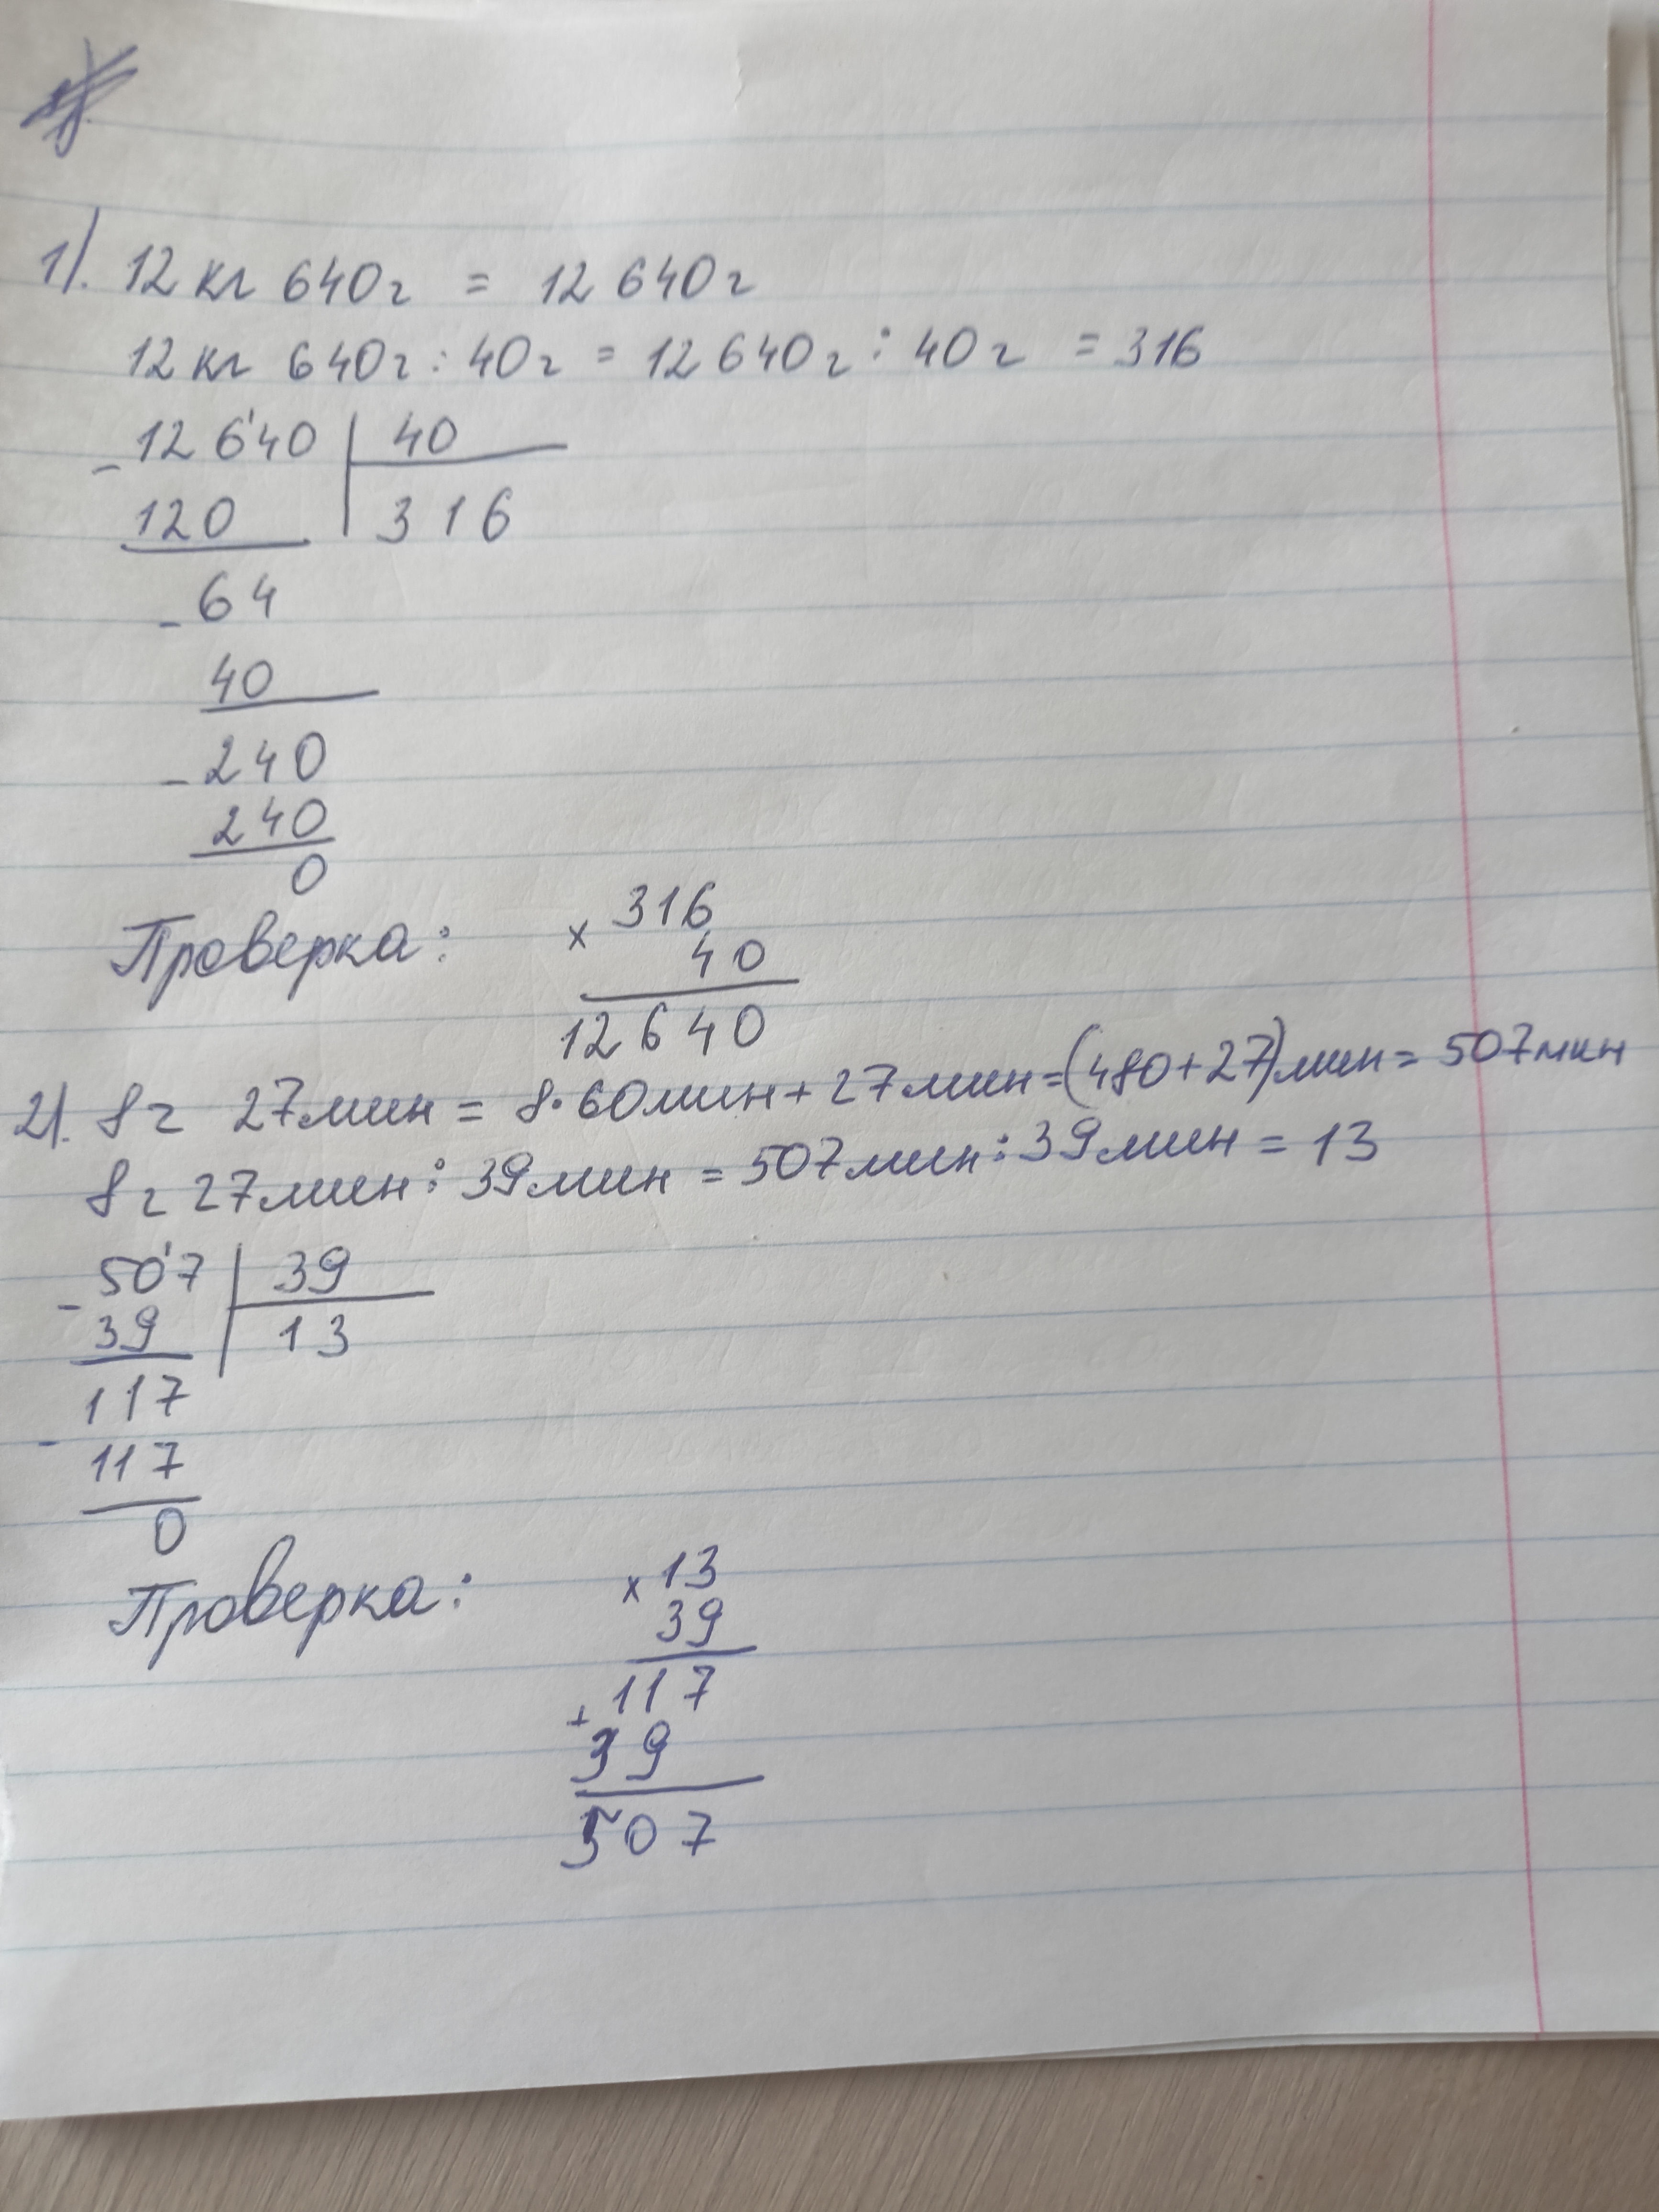 1). 12 кг 640г = 12 640г
12 кг 640г : 40г = 12 640г : 40г = 316
- 12 6'40 | 40
120 | 316
- 64
40
- 240
240
0
Проверка: × 316
40
12 640
2). 8г 27мин = 8·60мин + 27мин = (480+27)мин = 507мин
8г 27мин : 39мин = 507мин : 39мин = 13
- 50'7 | 39
39 | 13
- 117
117
0
Проверка: × 13
39
+ 117
39
507